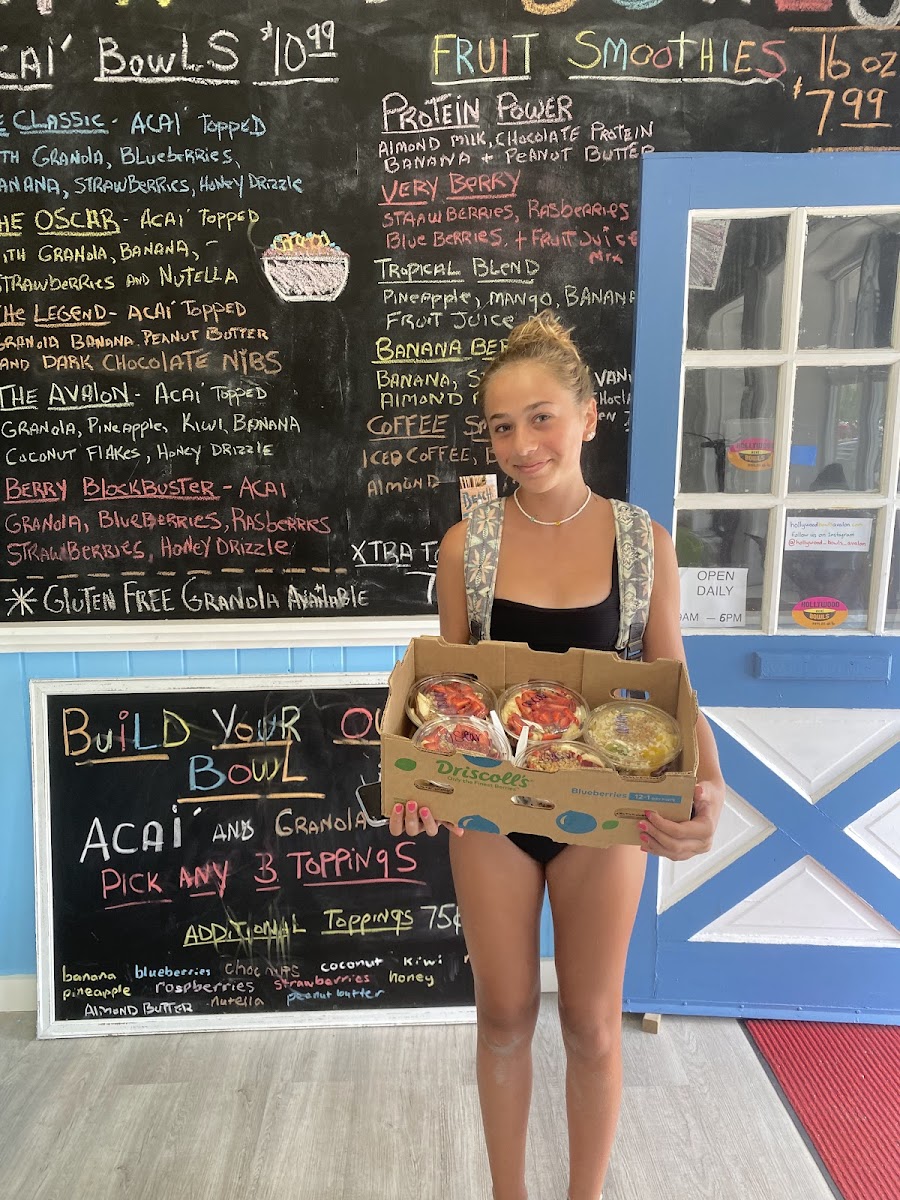 CAI BOWLS $10.99
E CLASSIC - ACAI TOPPED
TH GRANOLA, BLUEBERRIES,
ANANA, STRAWBERRIES, HONEY DRIZZLE
HE OSCAR - ACAI TOPPED
ITH GRANOLA, BANANA,
STRAWBERRIES AND NUTELLA
THE LEGEND - ACAI TOPPED
GRANOLA BANANA PEANUT BUTTER
AND DARK CHOCOLATE NIBS
THE AVALON - ACAI TOPPED
GRANOLA, PINEAPPLE, KIWI, BANANA
COCONUT FLAKES, HONEY DRIZZLE
BERRY BLOCKBUSTER - ACAI
GRANOLA, BLUEBERRIES, RASBERRIES
STRAWBERRIES, HONEY DRIZZLE
* GLUTEN FREE GRANOLA AVAILABLE
FRUIT SMOOTHIES 16 OZ
$7.99
PROTEIN POWER
ALMOND MILK, CHOCOLATE PROTEIN
BANANA + PEANUT BUTTER
VERY BERRY
STRAWBERRIES, RASBERRIES
BLUEBERRIES, + FRUIT JUICE
MIX
TROPICAL BLEND
PINEAPPLE, MANGO, BANANA
FRUIT JUICE
BANANA BER
BANANA, S VAN
ALMOND
COFFEE S
ICED COFFEE, B
ALMOND
BEACH
XTRA TO
7
BUILD YOUR OU
BOWL
ACAI AND GRANOLA
PICK ANY 3 TOPPINGS
ADDITIONAL TOPPINGS 75¢
banana blueberries choc nibs coconut kiwi
pineapple raspberries strawberries honey
ALMOND BUTTER nutella peanut butter
Driscoll's
Only the Finest Berries
Blueberries 12-1
HOLLYWOOD
BOWLS
hollywoodbowlsavalon.com
Follow us on Instagram
@hollywood_bowls_avalon
OPEN
DAILY
AM — 6PM
HOLLYWOOD
BOWLS